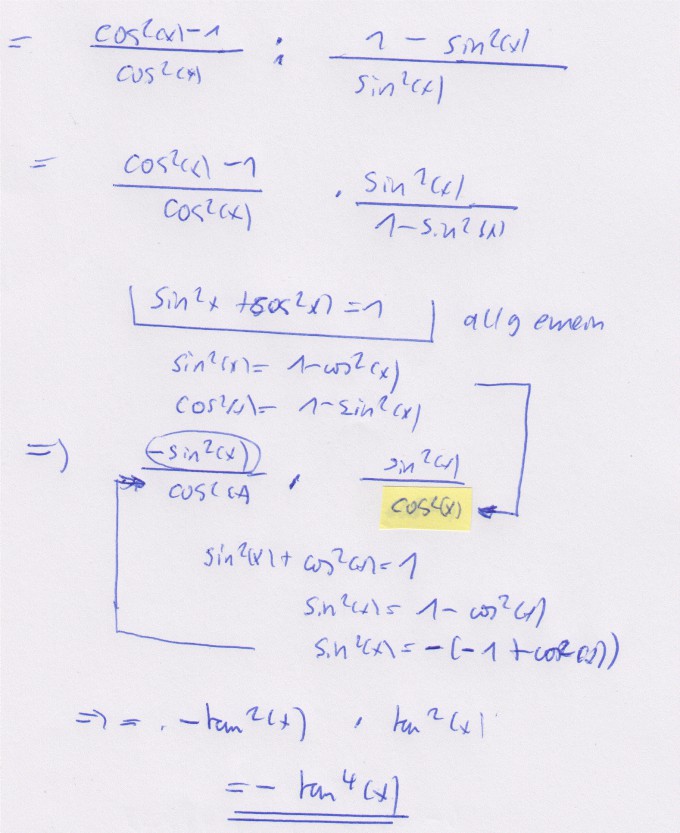 = (cos²(x) - 1)/(cos²(x)) : (1 - sin²(x))/(sin²(x))
= (cos²(x) - 1)/(cos²(x)) · (sin²(x))/(1 - sin²(x))
sin²x + cos²(x) = 1 allgemein
sin²(x) = 1 - cos²(x)
cos²(x) = 1 - sin²(x)
=> (-sin²(x))/(cos²(x)) · (sin²(x))/(cos²(x))
sin²(x) + cos²(x) = 1
sin²(x) = 1 - cos²(x)
sin²(x) = -(-1 + cos²(x))
=> = . -tan²(x) · tan²(x)
= - tan⁴(x)